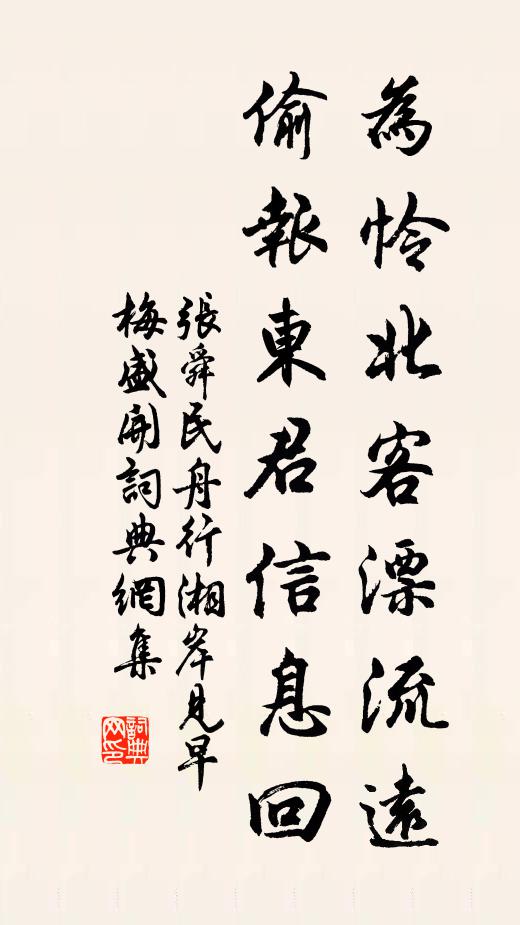 為怜北客漂流遠
偷報東君信息回
張舜民舟行湘岸見早
梅盛開詞典網集
詞典
网印